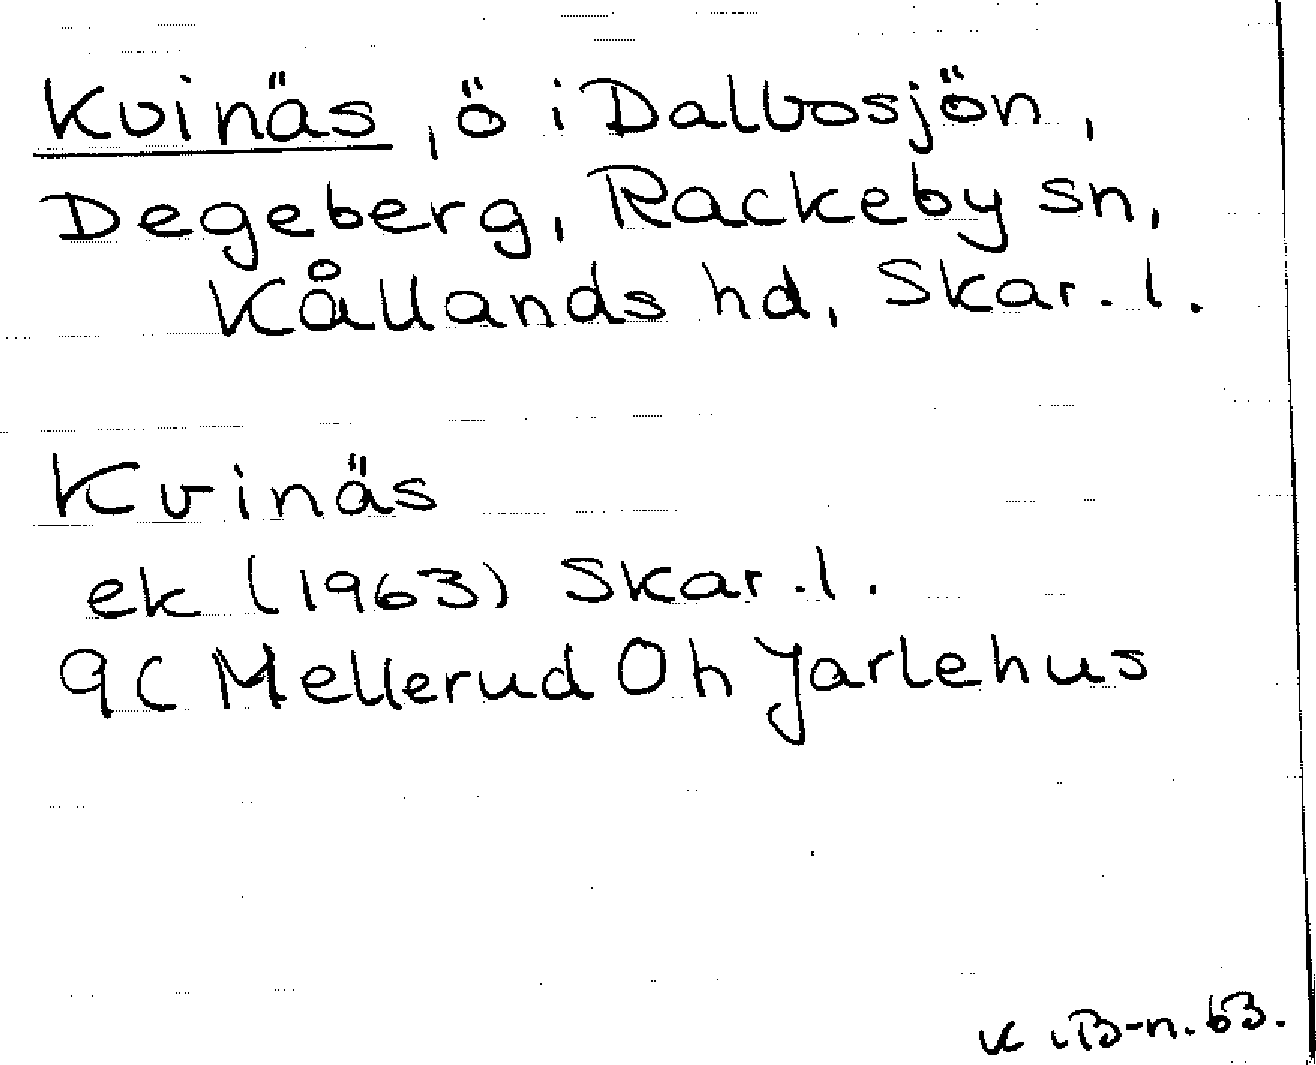 Kvinäs, ö i Dalbosjön,
Degeberg, Rackeby sn,
Kållands hd, Skar. l.
Kvinäs
ek (1963) Skar. l.
9C Mellerud 0h Jarlehus
K. B-n. 63.